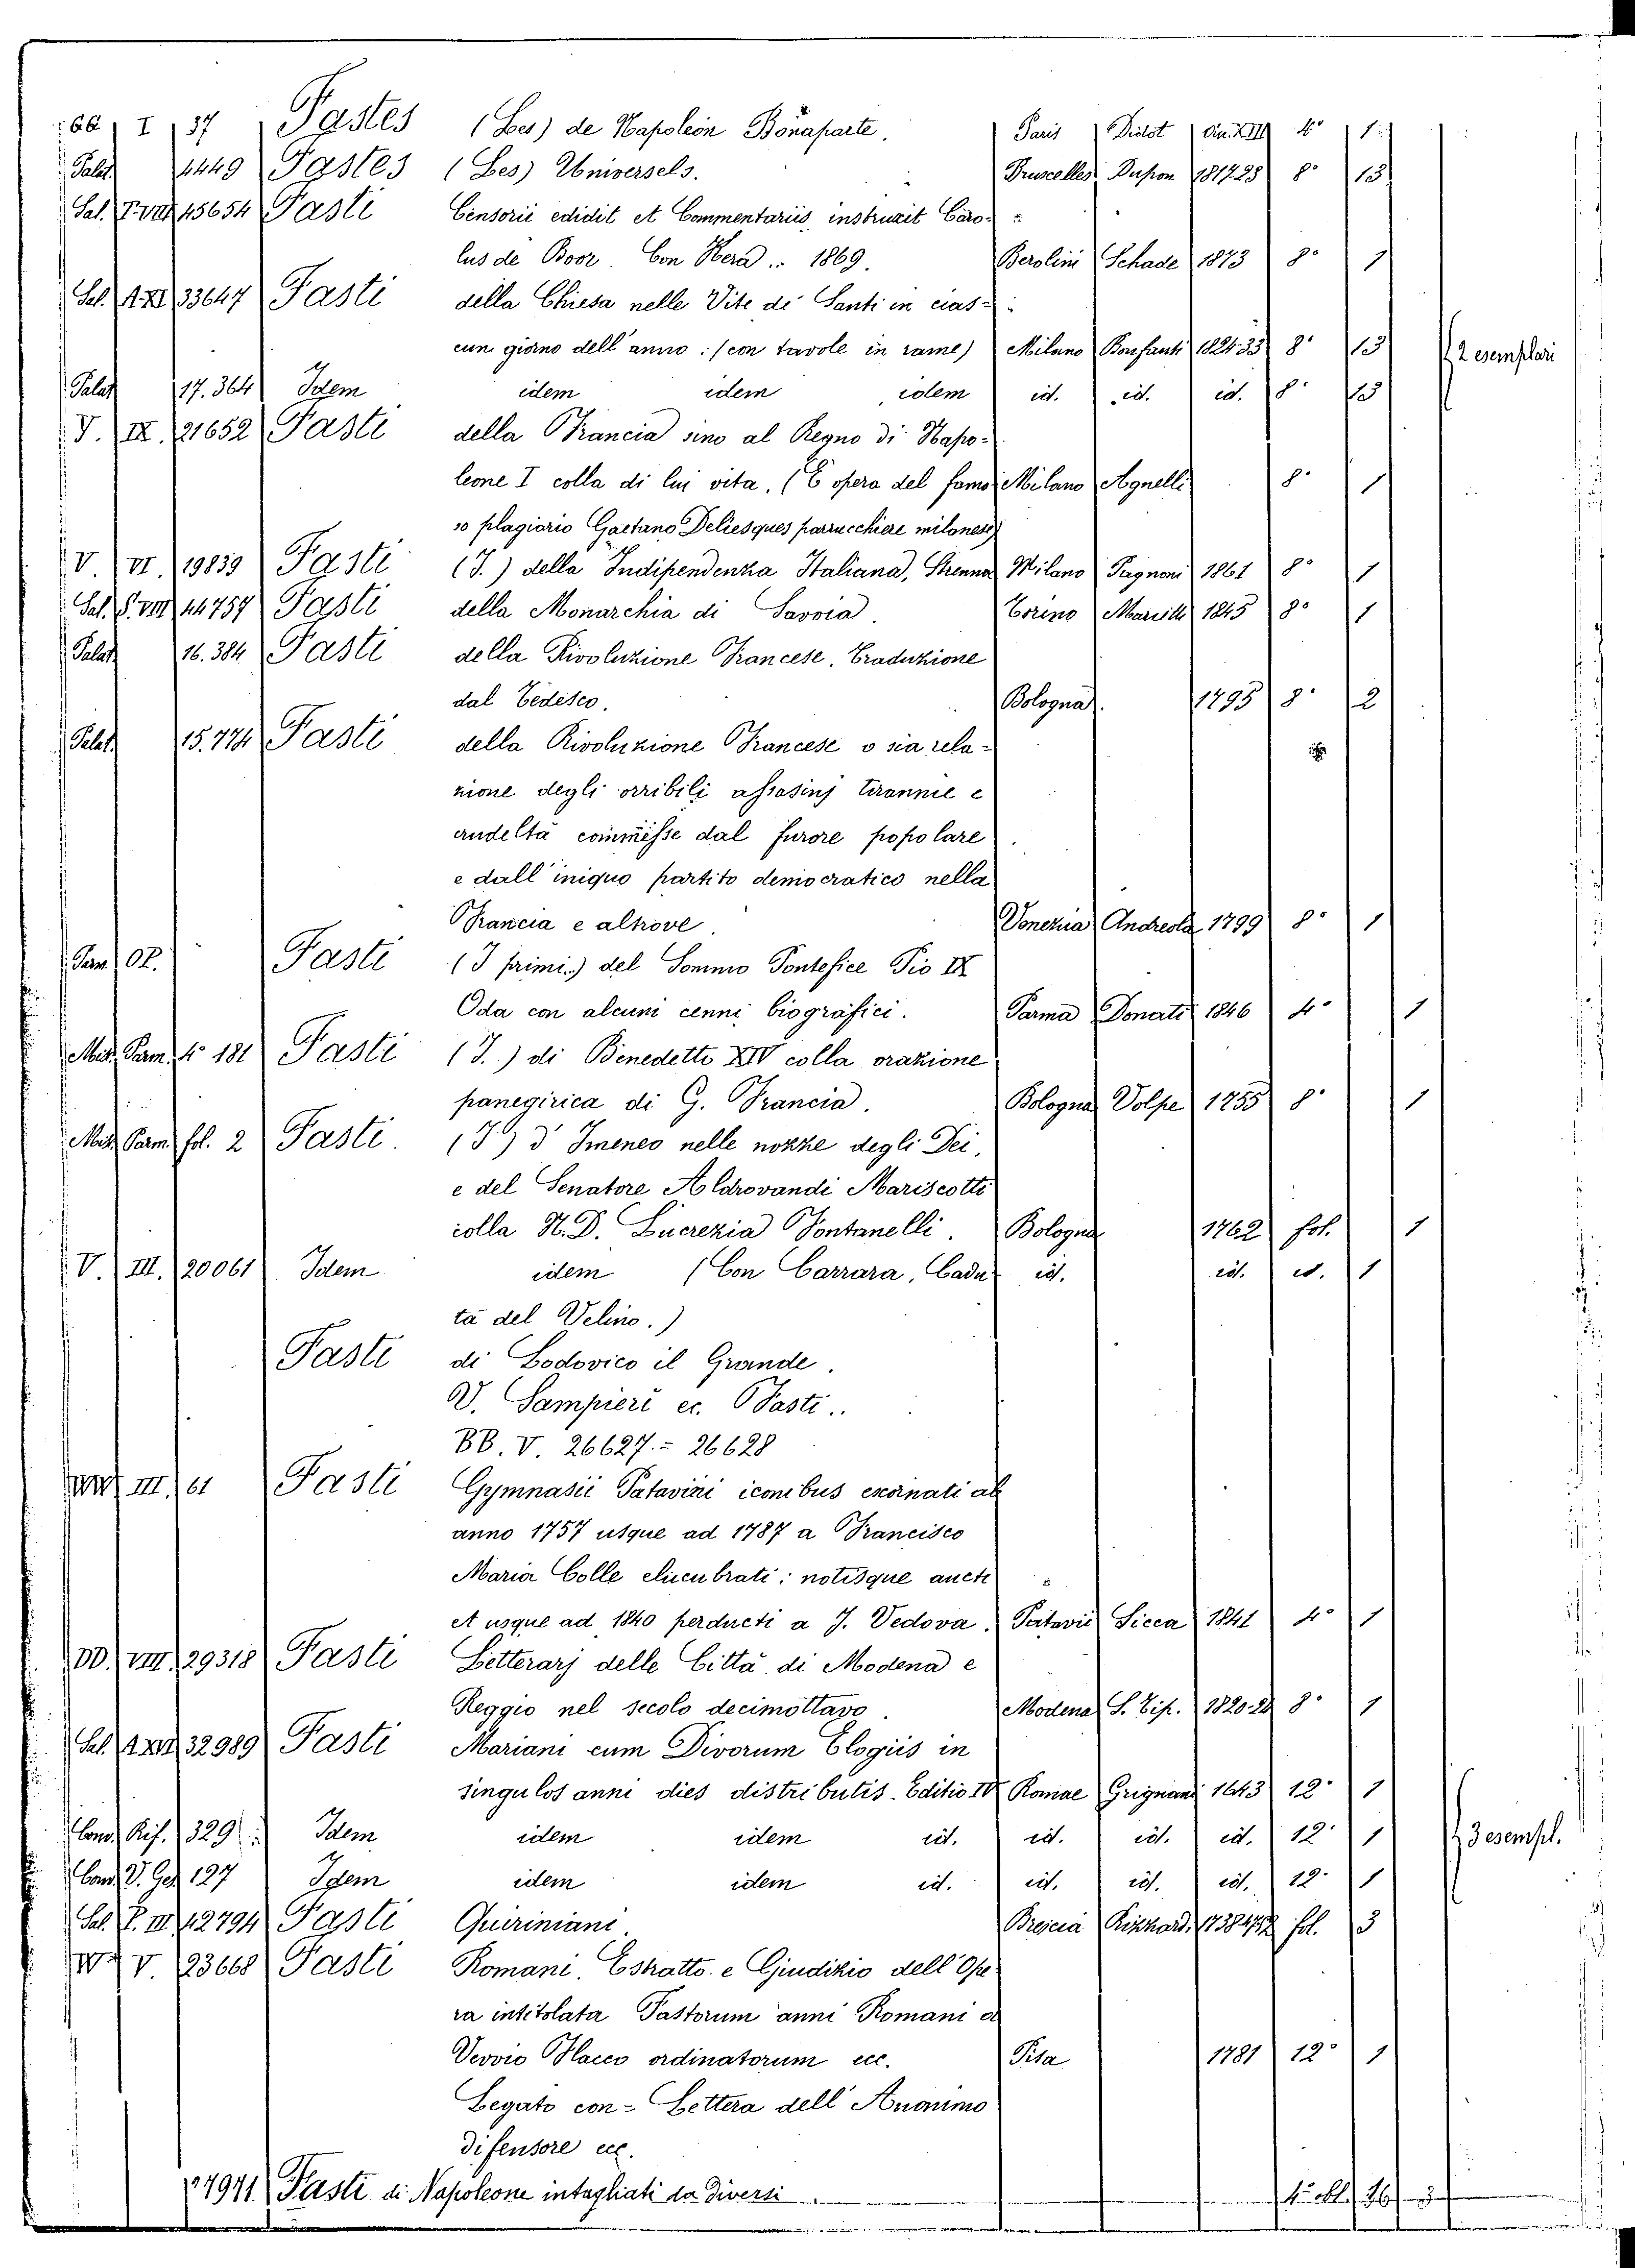 66 I 37 Fastes (Les) de Napoleòn Bonaparte. Paris Didot An. XIII 4° 1
Palat 4449 Fastes (Les) Universels. Bruscelles Dupon 1817.28 8° 13
Sal. T. VIII 45654 Fasti Censorii edidit et Commentariis instruxit Caro-
lus de Boor. Con Hera .. 1869. Berolini Schade 1873 8° 1
Sal. A. XI 33647 Fasti della Chiesa nelle Vite de' Santi in cias-
cun giorno dell'anno: (con tavole in rame) Milano Bonfanti 1824.33 8° 13 2 esemplari
Palat 17.364 Idem idem idem idem id. id. id. 8° 13
V. IX. 21652 Fasti della Francia sino al Regno di Napo-
leone I colla di lui vita. (E opera del famo- Milano Agnelli 8° 1
so plagiario Gaetano Deliesques parrucchiere milanese)
V. VI. 19839 Fasti (I.) della Indipendenza Italiana, Strenna Milano Pagnoni 1861 8° 1
Sal. S. VIII 44757 Fasti della Monarchia di Savoia. Torino 1845 8° 1
Palat 16.384 Fasti della Rivoluzione Francese. Traduzione
dal Tedesco. Bologna 1795 8° 2
Palat 15.774 Fasti della Rivoluzione Francese o sia rela-
zione degli orribili assasinj tirannie e
crudeltà commesse dal furore popolare
e dall'iniquo partito democratico nella
Francia e altrove. Venezia Andreola 1799 8° 1
Parm. 02. Fasti (I primi.) del Sommo Pontefice Pio IX
Oda con alcuni cenni biografici. Parma Donati 1846 4° 1
Misc. Parm. 4° 181 Fasti (I.) di Benedetto XIV colla orazione
panegirica di G. Francia. Bologna Volpe 1755 8° 1
Misc. Parm. fol. 2 Fasti. (I) d'Imeneo nelle nozze degli Dei,
e del Senatore Aldrovandi Mariscotti
colla N. D. Lucrezia Fontanelli. Bologna 1762 fol. 1
V. III. 20061 Idem idem (Con Carrara, Cadu- id. id. id. 1
ta del Velino.)
Fasti di Lodovico il Grande.
V. Sampieri ec. Fasti..
BB. V. 26627. = 26628
III. 61 Fasti Gymnasii Patavini iconibus exornati ab
anno 1757 usque ad 1787 a Francisco
Maria Colle elucubrati: notisque aucti
et usque ad 1840 perducti a J. Vedova. Patavii Sicca 1841 4° 1
DD. VIII. 29318 Fasti Letterarj delle Città di Modena e
Reggio nel secolo decimottavo. Modena S. Tip. 1820.24 8° 1
Sal. A XII 32989 Fasti Mariani cum Divorum Elogiis in
singulos anni dies distributis. Editio IV Romae Grignani 1643 12° 1
Cand. Rif. 329 Idem idem idem id. id. id. id. 12° 1 3 esempl.
Cand. V. Ges. 127 Idem idem idem id. id. id. id. 12° 1
Sal. P. III 42794 Fasti Quiriniani. Brescia Rizzardi 1738 fol. 3
V 23668 Fasti Romani. Estratto e Giudizio dell'Ope-
ra intitolata Fastorum anni Romani a
Verrio Flacco ordinatorum ecc. Pisa 1781 12° 1
Legato con = Lettera dell'Anonimo
difensore ecc.
27971 Fasti di Napoleone intagliati da diversi